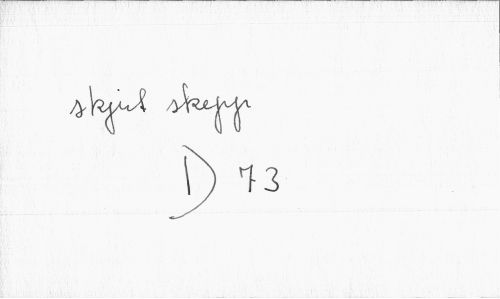 skjut skepp
D 73